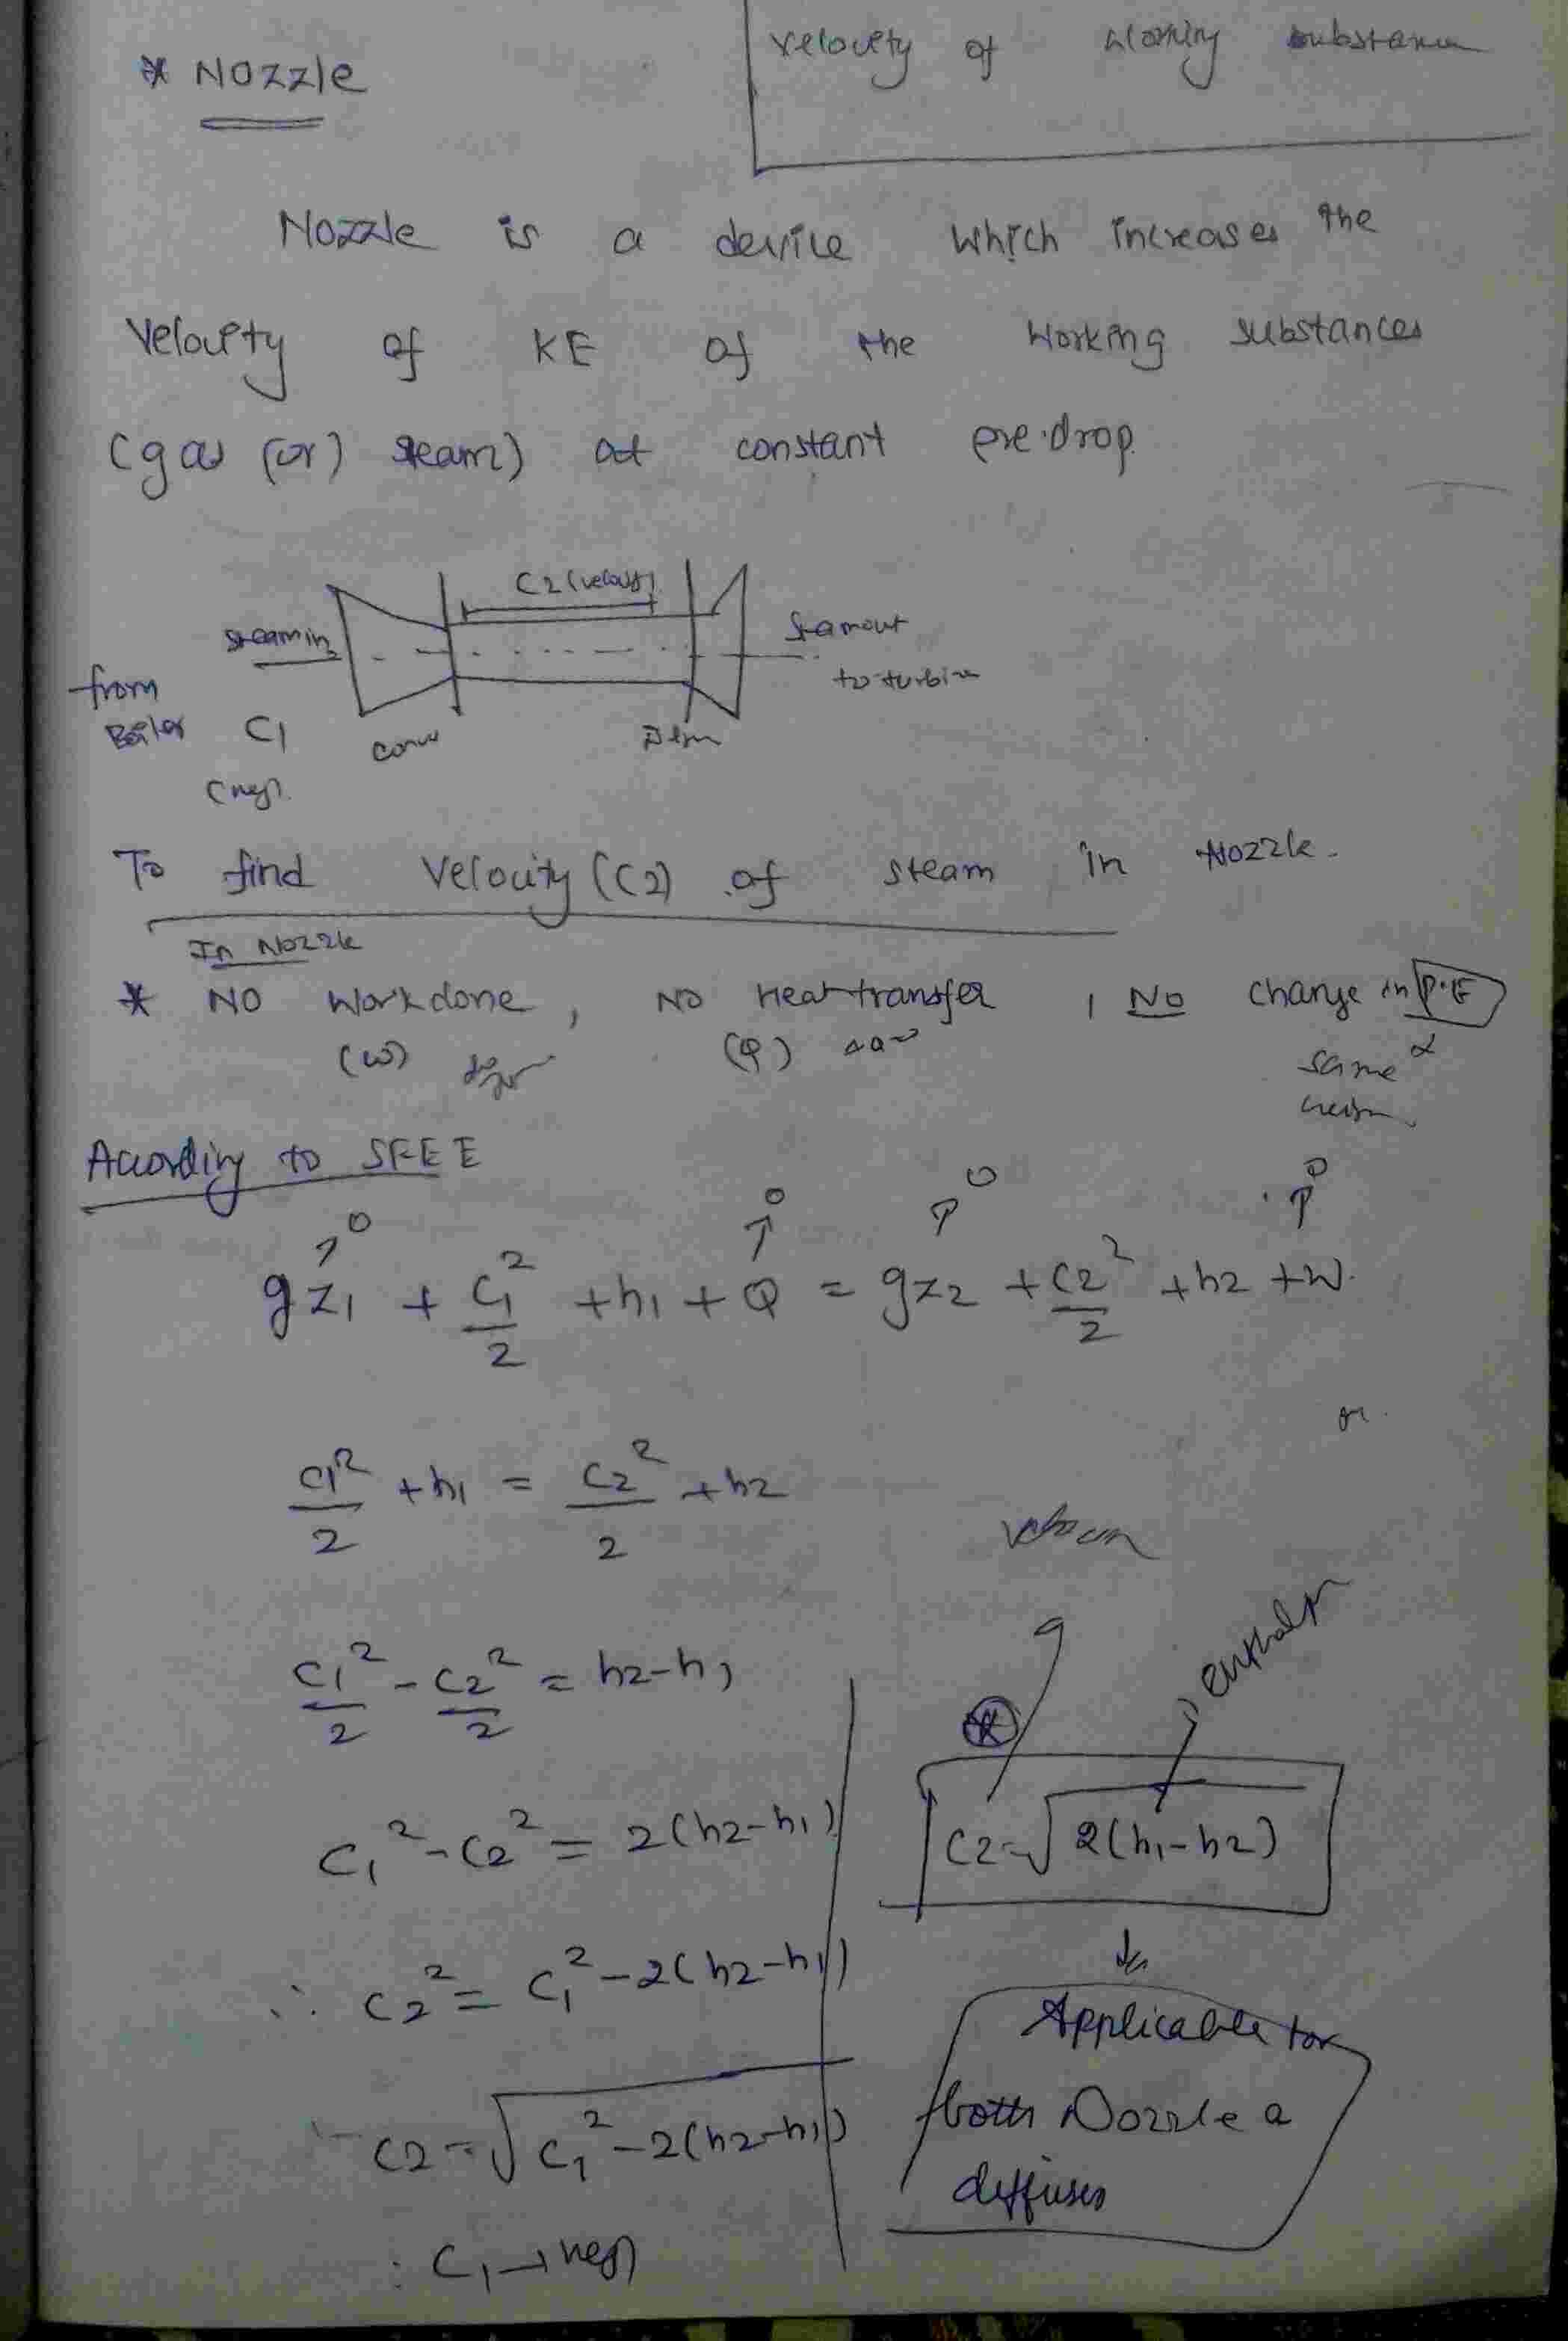 velocity of working substance
* Nozzle
Nozzle is a device which increases the
velocity of KE of the working substances
(gas (or) steam) at constant pre.drop.
C2 (velocity)
steam in
steam out
to turbine
from
Boiler C1
conv
(neg).
To find velocity (C2) of steam in Nozzle.
In Nozzle
* NO workdone, NO Heat transfer, NO change in P.E
(W) (Q)
same
According to SFEE
0 0 0 0
gz1 + C1²/2 + h1 + Q = gz2 + C2²/2 + h2 + W.
or
C1²/2 + h1 = C2²/2 + h2
C1²/2 - C2²/2 = h2-h1
C1² - C2² = 2(h2-h1)
∴ C2² = C1² - 2(h2-h1)
C2 = √C1² - 2(h2-h1)
: C1 → neg
enthalpy
*
C2 = √2(h1-h2)
Applicable for
both Nozzle &
diffuser